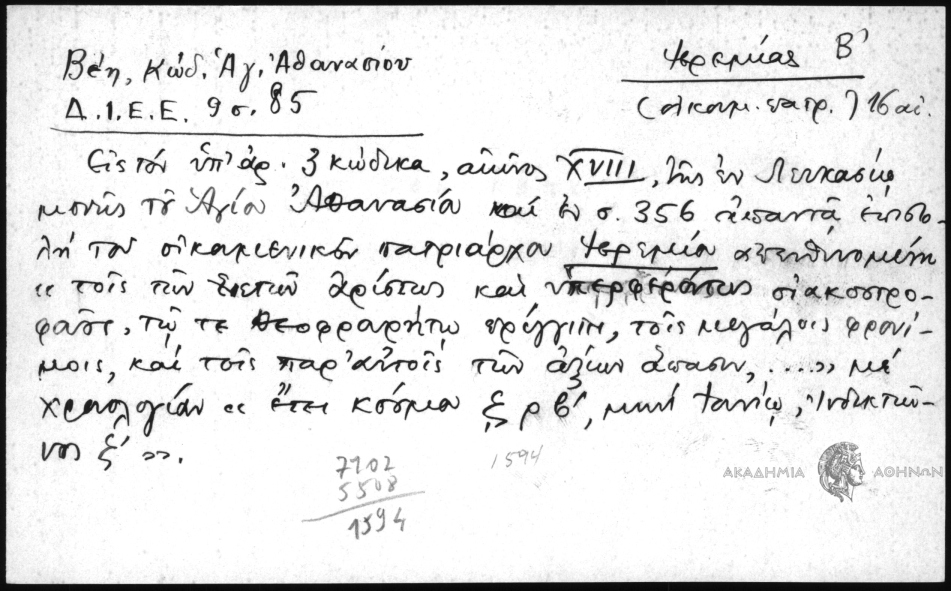 Βέη, Κώδ. Ἁγ. Ἀθανασίου
Δ.Ι.Ε.Ε. 9 σ. 85
Ἱερεμίας Β'
(οἰκουμ. πατρ.) 16 αἰ.
Εἰς τόν ὑπ' ἀρ. 3 κώδικα, αἰῶνος XVIII, τῆς ἐν
μονῆς τοῦ Ἁγίου Ἀθανασίου καί ἐν σ. 356 ἀπαντᾶ ἐπιστο-
λή τοῦ οἰκουμενικοῦ πατριάρχου Ἱερεμίου ἀπευθυνομένη
« τοῖς τῶν Ἑνετῶν ἀρίστοις καί ὑπερφεράτοις
τῷ τε θεοφρουρήτῳ πρίγγιπι, τοῖς μεγάλοις φρονί-
μοις, καί τοῖς παρ' αὐτοῖς τῶν ἀξίων ἅπασιν, .....» μέ
χρονολογίαν « ἔτει κόσμου ξ ρ β', μηνί , Ἰνδικτιῶ-
νος ξ' ».
7102
5508
1594
1594
ΑΚΑΔΗΜΙΑ ΑΘΗΝΩΝ